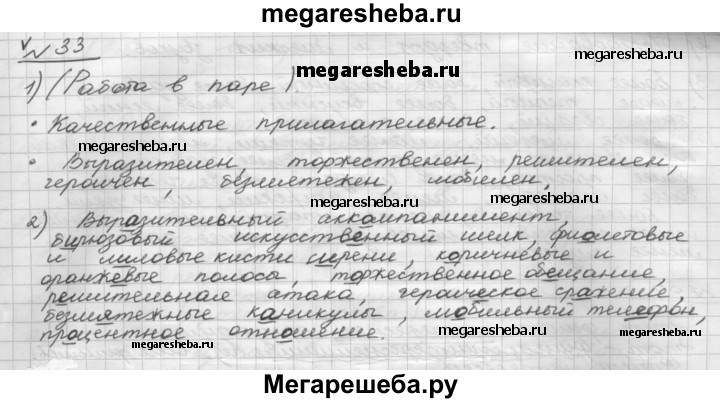 megaresheba.ru
№ 33
megaresheba.ru
1) (Работа в паре).
megaresheba.ru
• Качественные прилагательные.
megaresheba.ru
• Выразителен, торжественен, решителен,
героичен, безмятежен, мобилен,
megaresheba.ru
2) Выразительный аккомпанимент,
бирюзовый искусственный шелк, фиолетовые
и лиловые кисти сирени, коричневые и
оранжевые полосы, торжественное обещание,
решительная атака, героическое сражение,
безмятежные каникулы, мобильный телефон,
megaresheba.ru
процентное отношение.
megaresheba.ru
megaresheba.ru
Мегарешеба.ру